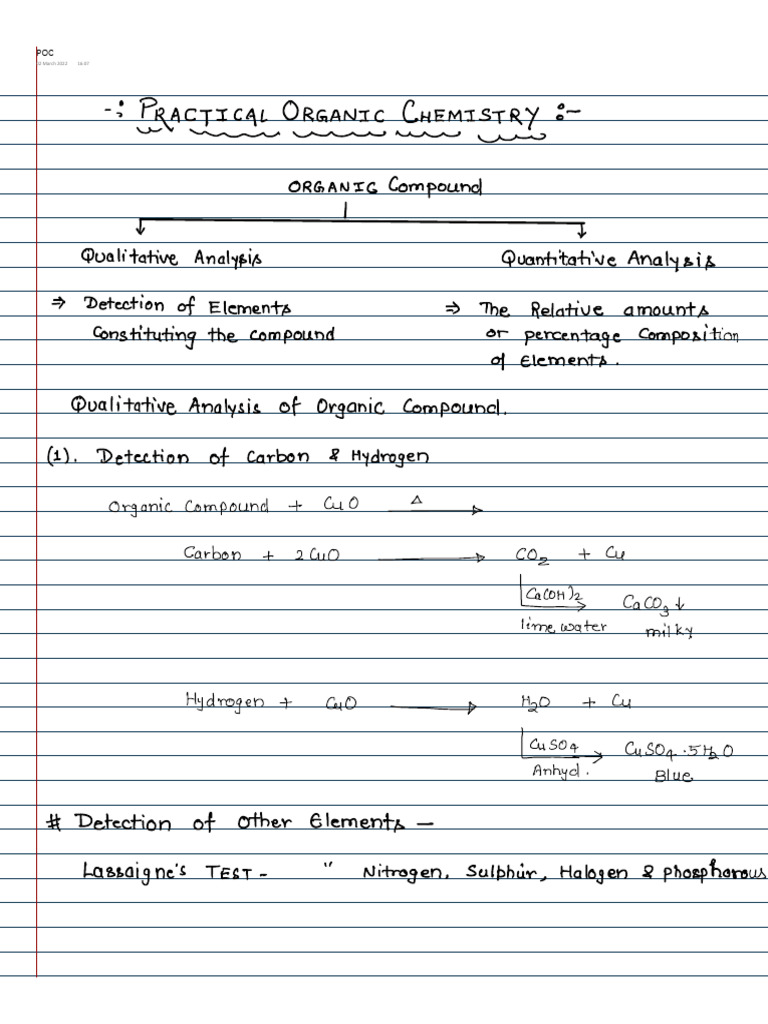 POC
12 March 2022 16:07
-: PRACTICAL ORGANIC CHEMISTRY :-
ORGANIC Compound
Qualitative Analysis
Quantitative Analysis
⇒ Detection of Elements
Constituting the compound
⇒ The Relative amounts
or percentage Composition
of Elements.
Qualitative Analysis of Organic Compound.
(1). Detection of Carbon & Hydrogen
Organic Compound + CuO —Δ→
Carbon + 2CuO ⟶ CO₂ + Cu
Ca(OH)₂ → CaCO₃↓
lime water milky
Hydrogen + CuO ⟶ H₂O + Cu
CuSO₄ → CuSO₄·5H₂O
Anhyd. Blue
# Detection of other Elements —
Lassaigne's TEST - " Nitrogen, Sulphur, Halogen & Phosphorous